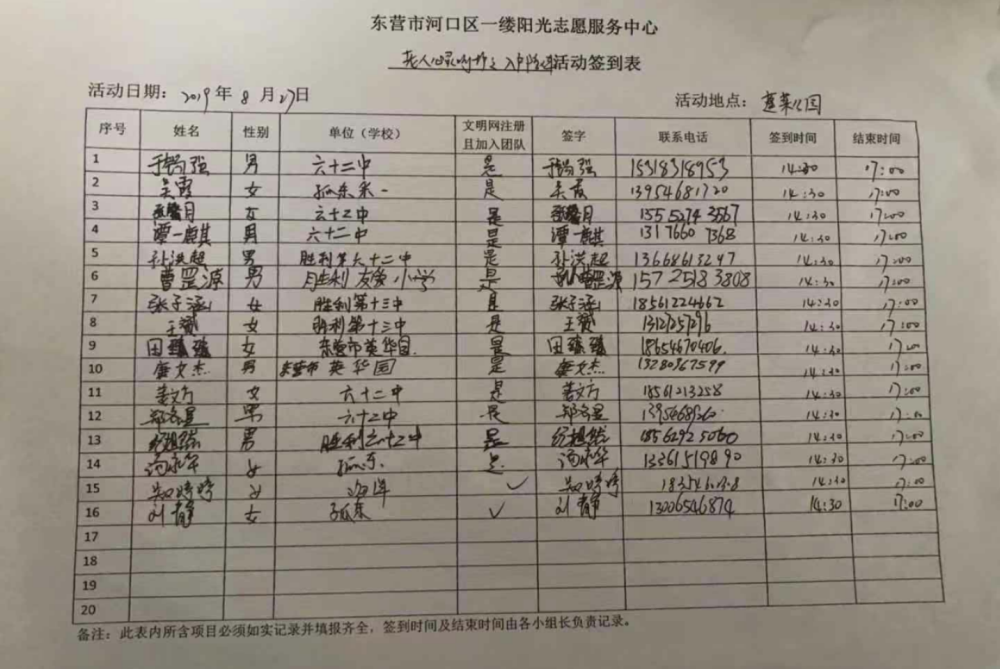 东营市河口区一缕阳光志愿服务中心
老人 活动签到表
活动日期：2019年8月27日 活动地点：蓬莱公园
序号 姓名 性别 单位（学校） 文明网注册且加入团队 签字 联系电话 签到时间 结束时间
1 男 六十二中 是 15318318953 14:30 17:00
2 吴霞 女 孤东采一 是 吴霞 13954681720 14:30 17:00
3 女 六十二中 是 15552743567 14:30 17:00
4 谭一麒 男 六十二中 是 谭一麒 13176607368 14:30 17:00
5 孙洪超 男 胜利第六十二中 是 孙洪超 13668613247 14:30 17:00
6 曹罡源 男 胜利友爱小学 是 曹罡源 15725183808 14:30 17:00
7 张子涵 女 胜利第十三中 是 张子涵 18561224662 14:30 17:00
8 王赟 女 胜利第十三中 是 王赟 14:30 17:00
9 田 女 东营市英华园 是 田 18654670406 14:30 17:00
10 男 东营市英华园 是 13280367599 14:30 17:00
11 姜文方 女 六十二中 是 姜文方 18561213258 14:30 17:00
12 男 六十二中 是 14:30 17:00
13 男 胜利六十二中 是 18562925060 14:30 17:00
14 女 孤东 是 13361519890 14:30 17:00
15 女 ✓ 14:30 17:00
16 刘静 女 孤东 ✓ 刘静 13006546874 14:30 17:00
17
18
19
20
备注：此表内所含项目必须如实记录并填报齐全，签到时间及结束时间由各小组长负责记录。